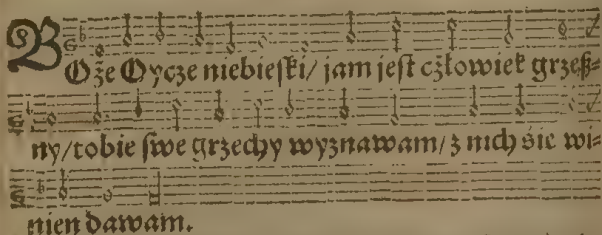 BOże Oycze niebieſki/ jam jeſt cżłowiek grzeß-
ny/tobie ſwe grzechy wyznawam/ z nich śię wi-
nien dawam.